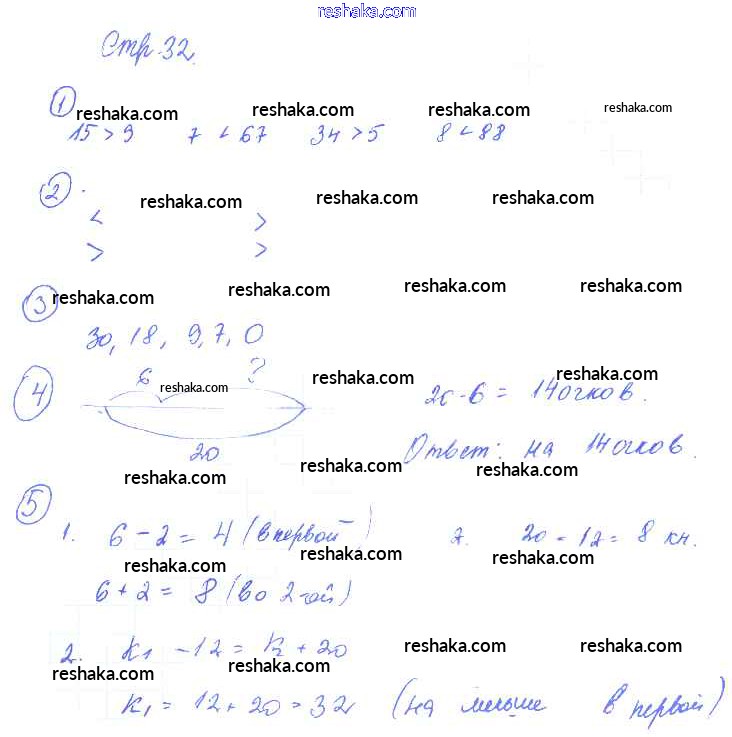 reshaka.com
Стр. 32.
1 reshaka.com reshaka.com reshaka.com reshaka.com
15 > 9 7 < 67 34 > 5 8 < 88
2 reshaka.com reshaka.com reshaka.com
< >
> >
3 reshaka.com reshaka.com reshaka.com reshaka.com
30, 18, 9, 7, 0
4 6 ? reshaka.com reshaka.com reshaka.com
20 - 6 = 14 очков.
20 Ответ: на 14 очков.
reshaka.com reshaka.com reshaka.com
5
1. 6 - 2 = 4 (в первой) 2. 20 - 12 = 8 кн.
reshaka.com reshaka.com reshaka.com
6 + 2 = 8 (во 2-ой)
reshaka.com reshaka.com reshaka.com
2. К1 - 12 = К2 + 20
reshaka.com reshaka.com reshaka.com reshaka.com
К1 = 12 + 20 = 32 (на меньше в первой)
reshaka.com reshaka.com reshaka.com